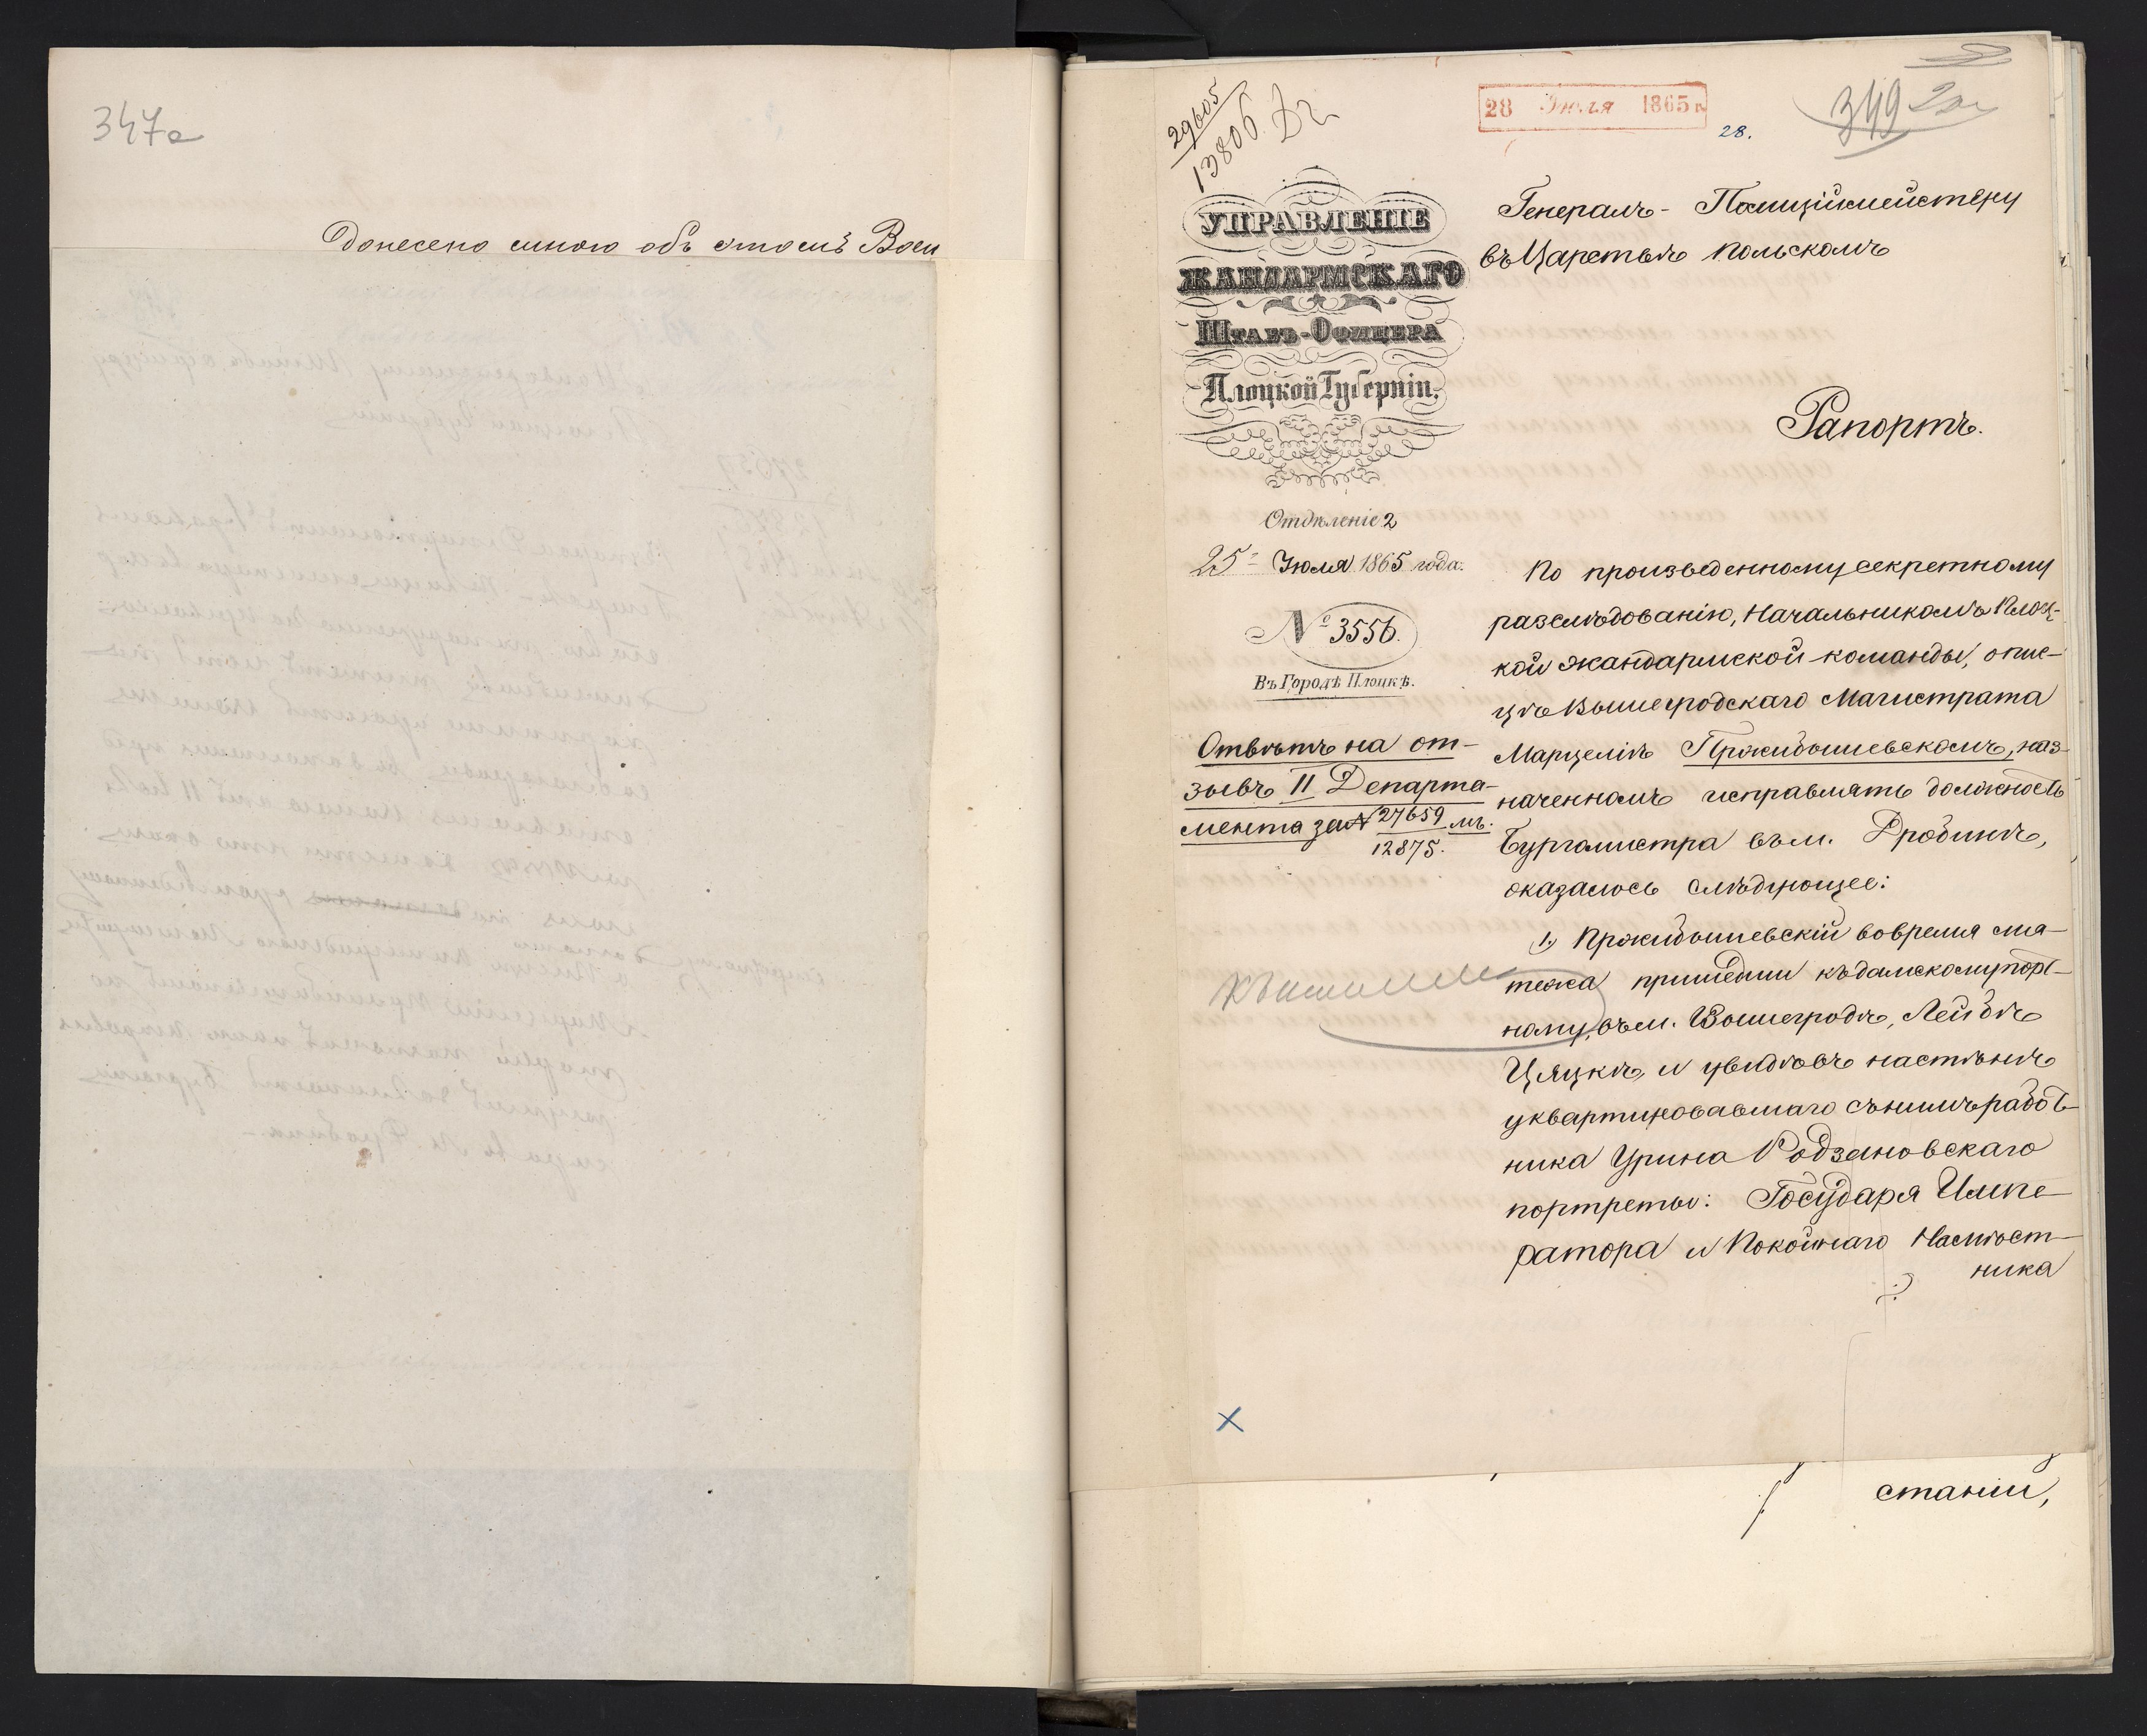 347а
Донесено мною объ этомъ Воен
29605
13806
28 Июля 1865 г.
28.
349
УПРАВЛЕНІЕ
ЖАНДАРМСКАГО
Штабъ-Офицера
Плоцкой Губерніи.
Отдѣленіе 2
25 Июля 1865 года.
№ 3556.
Въ Городѣ Плоцкѣ.
Отвѣтъ на от-
зывъ II Департа-
мента за № 27659 мъ.
12875.
Генералъ-Полицiймейстеру
въ Царствѣ Польскомъ
Рапортъ.
По произведенному секретному
разслѣдованію, Начальникомъ Плоц-
кой жандармской команды, о пис-
цѣ Вышегродскаго Магистрата
Марцеліѣ Пржибышевскомъ, наз-
наченномъ исправлять должность
Бургомистра въ м. Дробинѣ,
оказалось слѣдующее:
1) Пржибышевскій вовремя мя-
тежа пришедши къ дамскому порт-
ному, въ м. Вышегродѣ, Лейбѣ
Цяцкѣ, и увидѣвъ на стѣнѣ
у квартировавшаго съ нимъ работ-
ника Урина Родзановскаго
портреты: Государя Импе-
ратора и Покойнаго Намѣст-
ника
станіи,